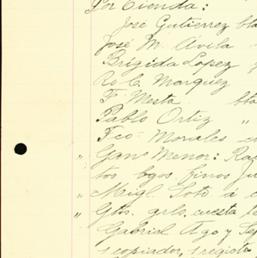 Por Cuenta:
José Gutierrez bta
José M. Avila
Brigida Lopez y
de C. Marquez
F. Mesta bta
Pablo Ortiz "
Fco. Morales
" Gan Menor: Ra
tos finos
" Migl Soto á c
Gtos. grls, cuesta
Gabriel Ago y Se
copiador, registro